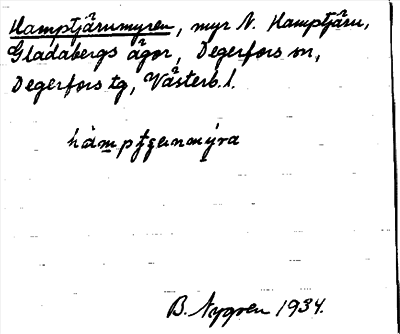 Hamptjärnmyren, myr N. Hamptjärn,
Gladabergs ägor, Degerfors sn,
Degerfors tg, Västerb. l.
B. Nygren 1934.